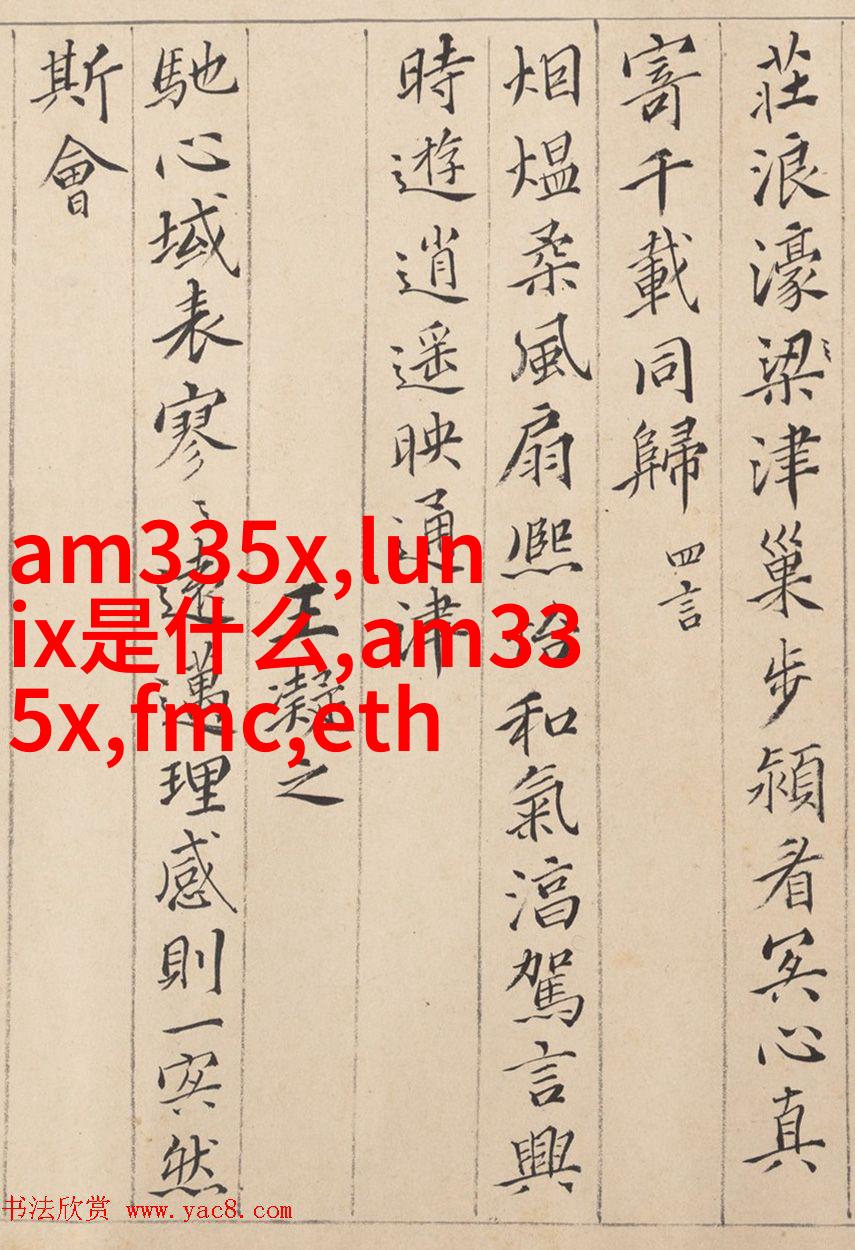 莊浪濠梁津巢步潁看冥心真
寄千載同歸 四言
烟熅柔風扇熙怡和氣淳駕言興
時遊逍遥映通津
王凝之
馳心域表寥〻遠邁理感則一冥然
斯會
am335x,lun
ix是什么,am33
5x,fmc,eth
书法欣赏 www.yac8.com